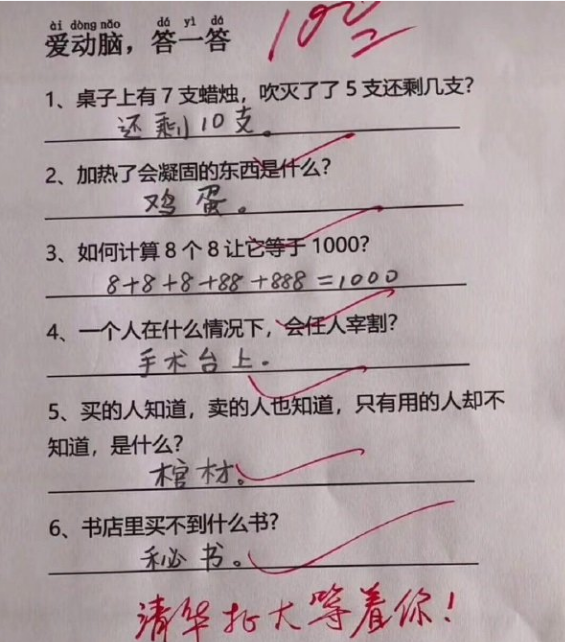 ài dòng nǎo dá yì dá
爱动脑，答一答
100
1、桌子上有7支蜡烛，吹灭了了5支还剩几支?
还剩10支。
2、加热了会凝固的东西是什么?
鸡蛋。
3、如何计算8个8让它等于1000?
8+8+8+88+888=1000
4、一个人在什么情况下，会任人宰割?
手术台上.
5、买的人知道，卖的人也知道，只有用的人却不
知道，是什么?
棺材。
6、书店里买不到什么书?
秘书。
清华北大等着你!